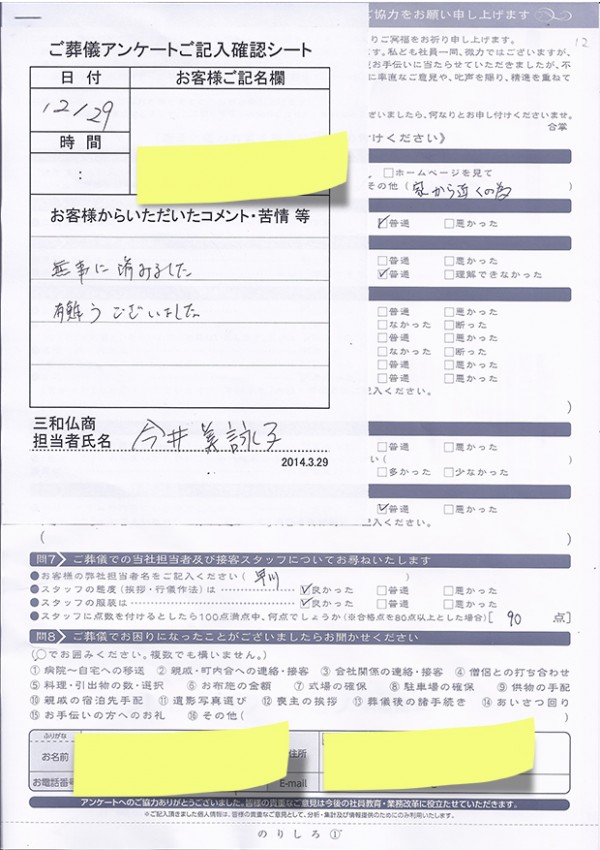 ご協力をお願い申し上げます
りご冥福をお祈り申し上げます。
す。私ども社員一同、微力ではございますが、
お手伝いに当たらせていただきましたが、不
に率直なご意見や、叱声を賜り、精進を重ねて
ざいましたら、何なりとお申し付けくださいませ。
合掌
付けください》
12
□ホームページを見て
その他(家から近くの為
☑普通 □悪かった
□普通 □悪かった
☑普通 □理解できなかった
□普通 □悪かった
□なかった □断った
□普通 □悪かった
□なかった □断った
□普通 □悪かった
□普通 □悪かった
記入ください。
)
□普通 □悪かった
い( )
□多かった □少なかった
☑普通 □悪かった
記入ください。
( )
ご葬儀アンケートご記入確認シート
日 付
お客様ご記名欄
12/29
時 間
:
お客様からいただいたコメント・苦情 等
無事に済みました
有難うございました
三和仏商
担当者氏名 今井 美詠子
2014.3.29
問7 ご葬儀での当社担当者及び接客スタッフについてお尋ねいたします
●お客様の弊社担当者名をご記入ください( 早川 )
●スタッフの態度(挨拶・行儀作法)は ☑良かった □普通 □悪かった
●スタッフの服装は ☑良かった □普通 □悪かった
●スタッフに点数を付けるとしたら100点満点中、何点でしょうか(※合格点を80点以上とした場合)[ 90 点]
問8 ご葬儀でお困りになったことがございましたらお聞かせください
(○でお囲みください。複数でも構いません。)
① 病院~自宅への移送 ② 親戚・町内会への連絡・接客 ③ 会社関係の連絡・接客 ④ 僧侶との打ち合わせ
⑤ 料理・引出物の数・選択 ⑥ お布施の金額 ⑦ 式場の確保 ⑧ 駐車場の確保 ⑨ 供物の手配
⑩ 親戚の宿泊先手配 ⑪ 遺影写真選び ⑫ 喪主の挨拶 ⑬ 葬儀後の諸手続き ⑭ あいさつ回り
⑮ お手伝いの方へのお礼 ⑯ その他( )
ふりがな
お名前
住所
お電話番号
E-mail
アンケートへのご協力ありがとうございました。皆様の貴重なご意見は今後の社員教育・業務改革に役立たせていただきます。
※ご記入頂きました個人情報は、皆様の貴重なご意見として、分析・集計及び情報提供のためにのみ利用いたします。
のりしろ①